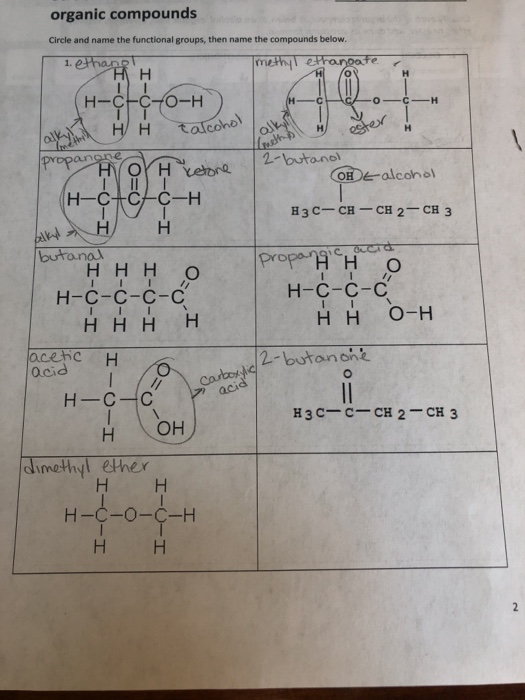 organic compounds
Circle and name the functional groups, then name the compounds below.
1. ethanol
H H
H-C-C-O-H
H H
alkyl
(methyl)
alcohol
methyl ethanoate
H O H
H-C-C-O-C-H
H H
alkyl
(methyl)
ester
propanone
H O H
ketone
H-C-C-C-H
H H
alkyl
2-butanol
OH
alcohol
H3C-CH-CH2-CH3
butanal
H H H O
H-C-C-C-C
H H H H
propanoic acid
H H O
H-C-C-C
H H O-H
acetic
acid
H O
H-C-C
H OH
carboxylic
acid
2-butanone
O
H3C-C-CH2-CH3
dimethyl ether
H H
H-C-O-C-H
H H
2